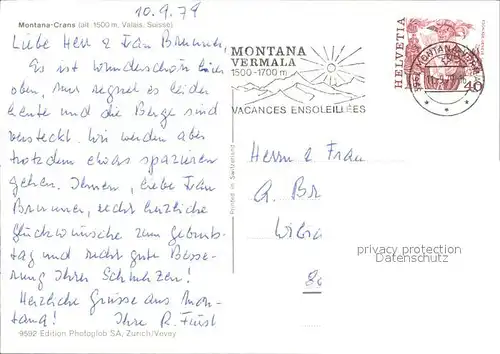 10.9.79
Montana-Crans (alt. 1500 m, Valais, Suisse)
Liebe Herr & Frau Brunner,
Es ist wunderschön hier
oben, nur regnet es leider
heute und die Berge sind
versteckt. Wir werden aber
trotzdem etwas spazieren
gehen. Ihnen, liebe Frau
Brunner, recht herzliche
Glückwünsche zum Geburts-
tag und recht gute Besse-
rung Ihrer Schmerzen!
Herzliche Grüsse aus Mon-
tana! Ihre R. Fürst
9592 Edition Photoglob SA, Zürich/Vevey
Printed in Switzerland
MONTANA
VERMALA
1500-1700 m
VACANCES ENSOLEILLÉES
HELVETIA
40
MONTANA-VERMALA
Herrn & Frau
A. Br
privacy protection
Datenschutz